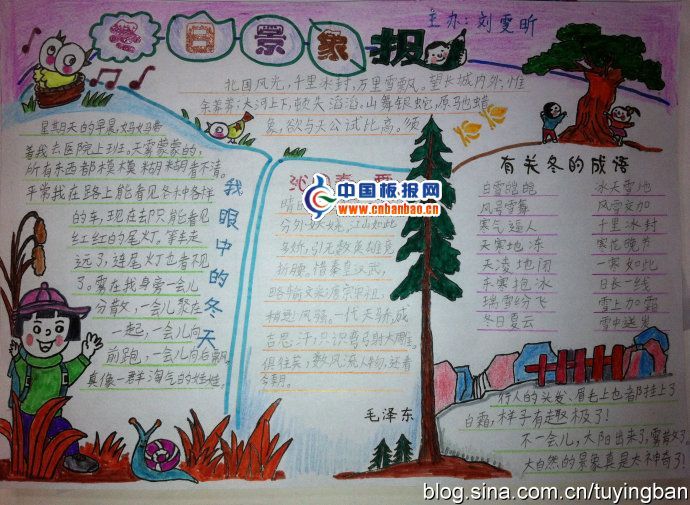 冬日景象报
主办:刘雯昕
北国风光,千里冰封,万里雪飘。望长城内外,惟
余莽莽;大河上下,顿失滔滔。山舞银蛇,原马蜡
象,欲与天公试比高。须
沁园春
分外妖娆。江山如此
多娇,引无数英雄竞
折腰。惜秦皇汉武,
略输文采;唐宗
稍逊风骚。一代天骄,成
吉思汗,只识弯弓射大雕。
俱往矣,数风流人物,还看
今朝。
毛泽东
我眼中的冬天
星期天的早晨,妈妈带
着我去医院上班。天雾蒙蒙的,
所有东西都模模糊糊看不清。
平常我在路上能看见各种各样
的车,现在却只能看见
红红的尾灯。等走
远了,连尾灯也看不见
了。雾在我身旁一会儿
分散,一会儿聚在
一起,一会儿向
前跑,一会儿向后飘,
真像一群淘气的娃娃。
有关冬的成语
白雪皑皑 冰天雪地
风号雪舞 风雪交加
寒气逼人 千里冰封
天寒地冻 寒花晚节
天凌地闭 一寒如此
冬寒抱冰 日长一线
瑞雪纷飞 雪上加霜
冬日夏云 雪中送炭
行人的头发、眉毛上也都挂上了
白霜,样子有趣极了!
不一会儿,太阳出来了,雾散了,
大自然的景象真是太神奇了!
中国板报网
www.cnbanbao.cn
blog.sina.com.cn/tuyingban